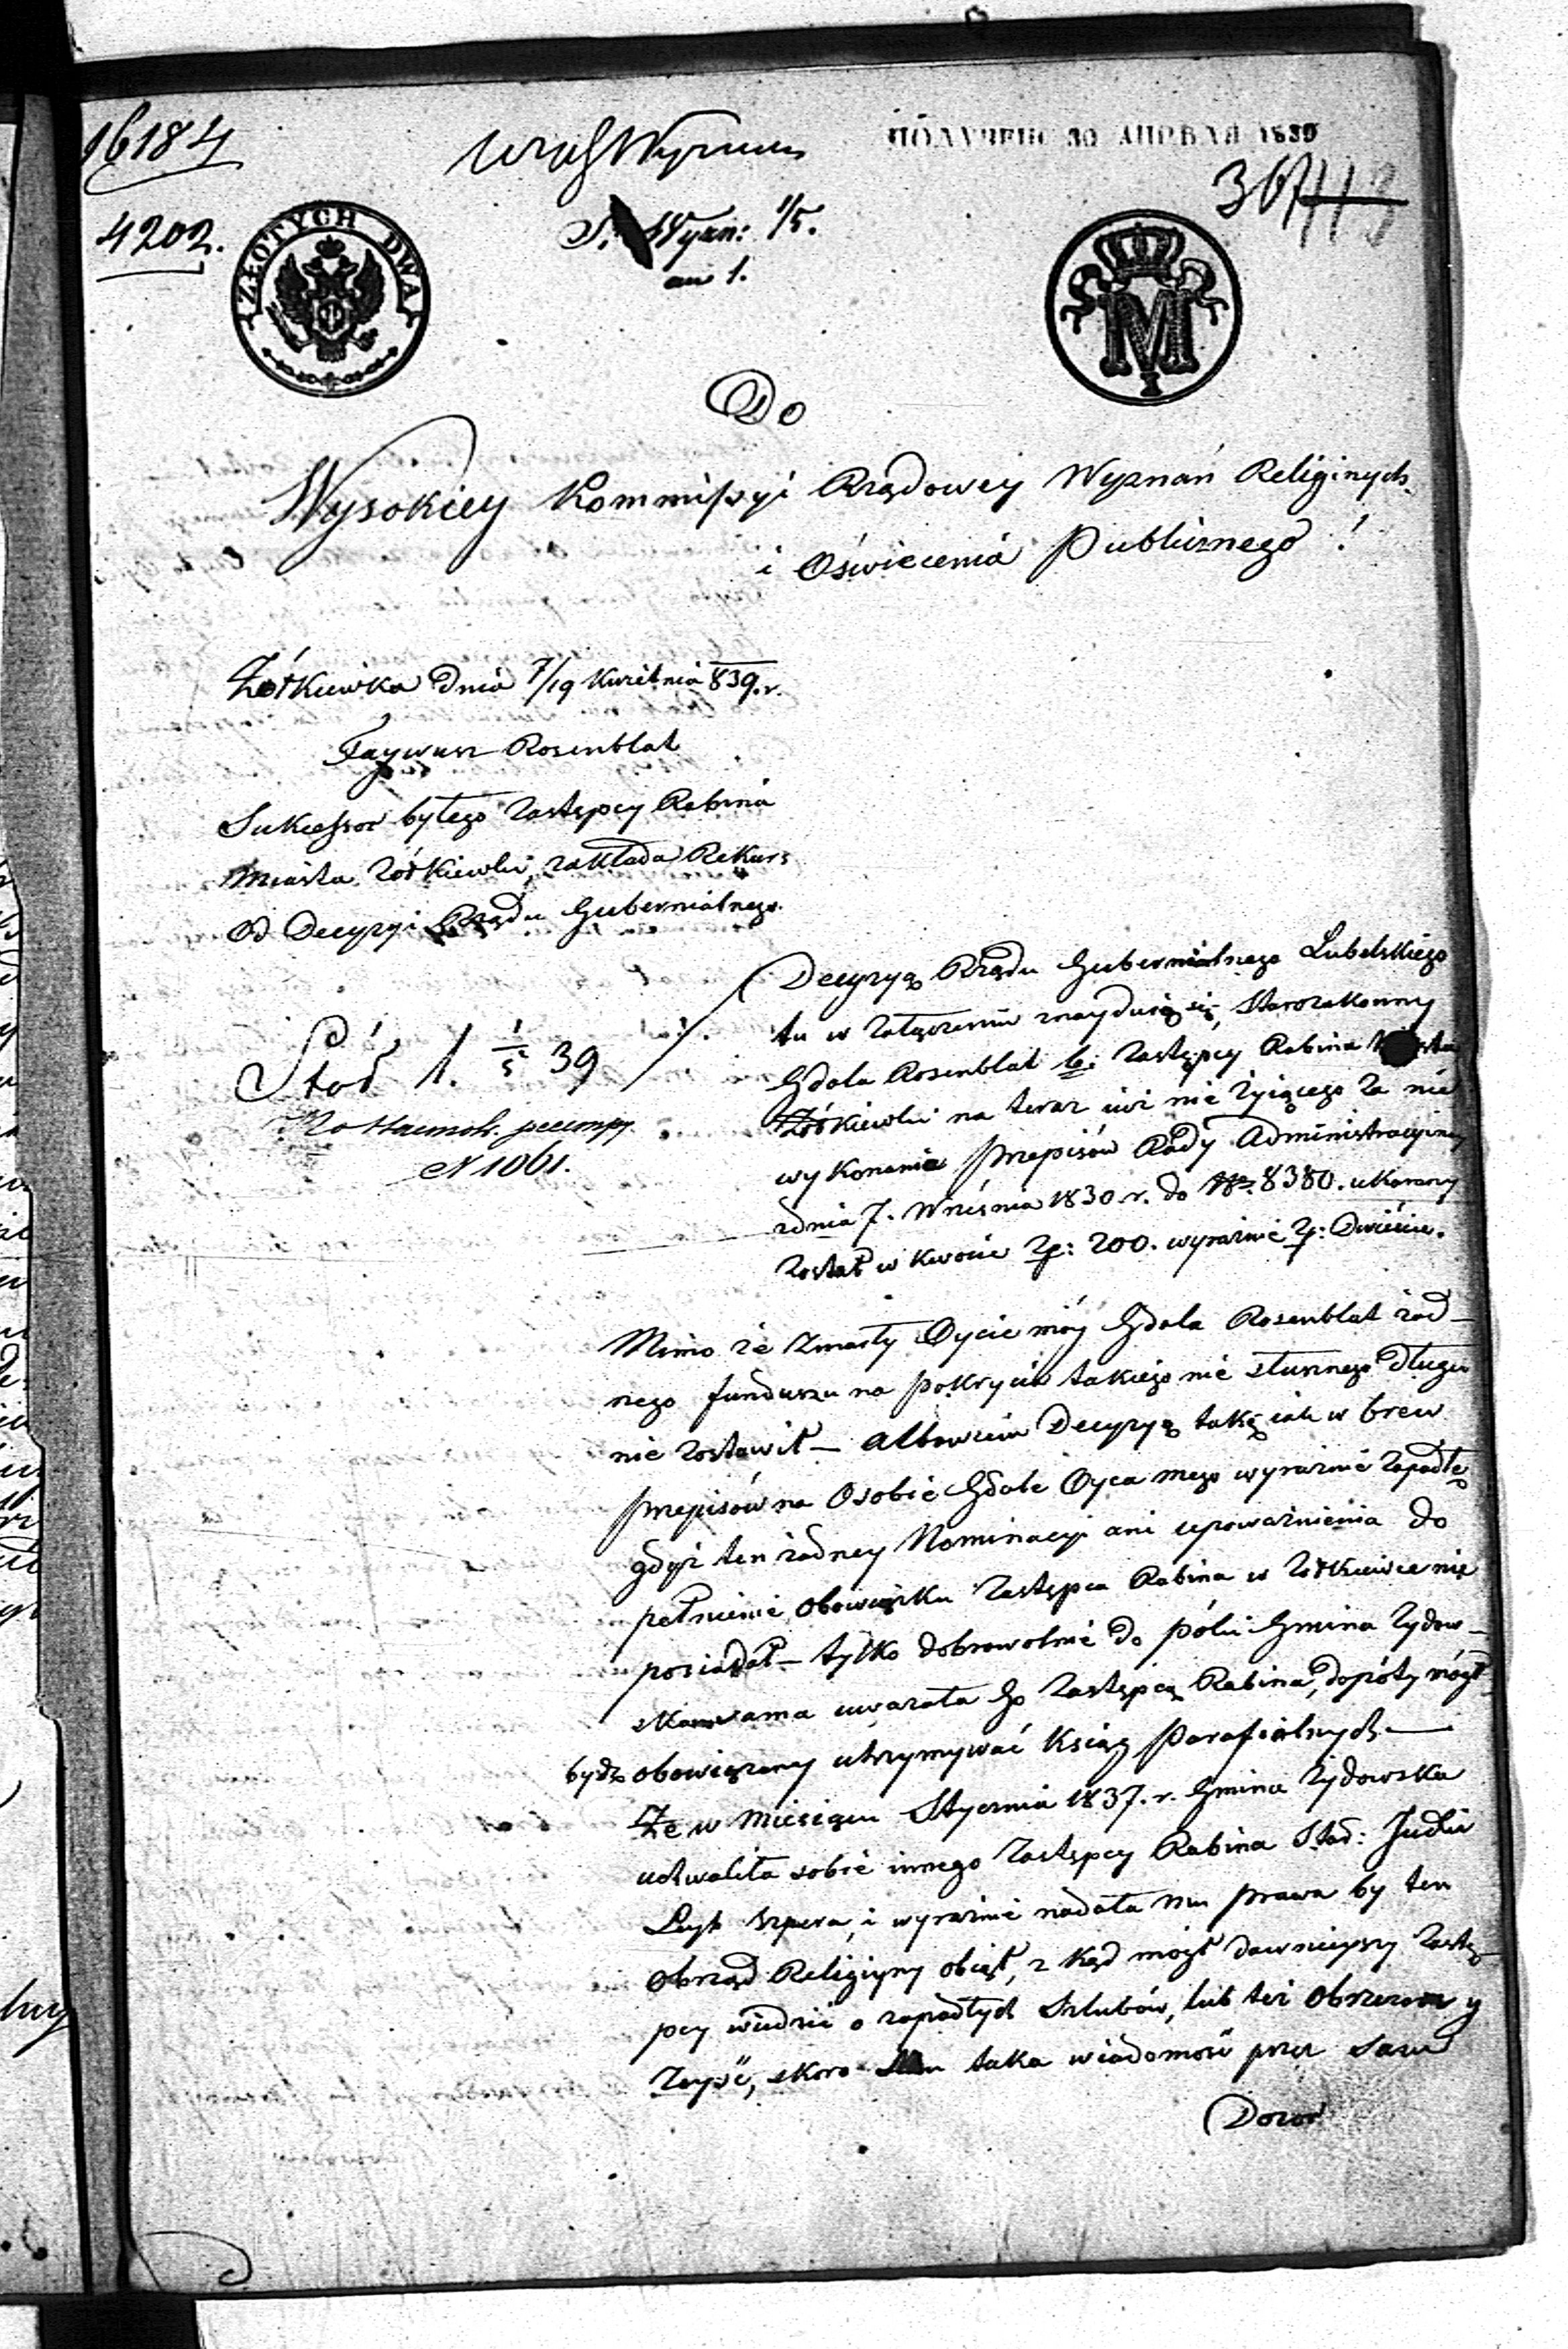 16184
ПОЛУЧЕНО 30 АПРѢЛЯ 1839
367 113
4202.
Wyzn: 1/5.
1.
ZŁOTYCH DWA
M
I
Do
Wysokiey Kommissyi Rządowey Wyznań Religinych
i Oświecenia Publicznego!
Żółkiewka dnia 7/19 Kwietnia 839. r.
Faywusz Rosenblat
Sukcessor byłego Zastępcy Rabina
Miasta Zółkiewki, zakłada Rekurs
od Decyzyi Rządu Gubernialnego.
Decyzyą Rządu Gubernialnego Lubelskiego
tu w załączeniu znayduiące się, Starozakonny
Gdala Rosenblat b: Zastępcy Rabina
Żółkiewki na teraz iuż nie żyiącego za nie
wykonanie przepisów Rady Administracyiney
zdnia 7. Września 1830 r. do Nr. 8380. ukarany
został w kwocie Zp: 200. wyraźnie Zp: Dwieście.
1. 1/5 39
N 1061.
Mimo że zmarły Oycie móy Gdala Rosenblat żad-
nego funduszu na pokrycie takiego nie słusznego długu
nie zostawił - albowiem Decyzyą takę iak w brew
przepisów na Osobie Gdale Oyca mego wyraźnie zapadłę
gdyż ten żadney Nominacyi ani upoważnienia do
pełnienie obowiązku Zastępca Rabina w Zółkiewce nie
posiadał - tylko dobrowolnie do póki Gmina Zydow-
ska sama uwarzała Go Zastępcą Rabina, dopóty mógł
bydź obowiązany utrzymywać Ksiąg Parafialnych -
Że w Miesiącu Styczniu 1837. r. Gmina Zydowska
uchwaliła sobie innego Zastępcy Rabina Stad: Judki
Leyb Szpera, i wyraźnie nadała mu prawa by ten
Obrząd Religiyny obiął, z kąd mógł dawnieyszy Zastę-
pcy wiedzić o zapadłych Szlubów, lub też
Zeyść, skoro taka wiadomość przez sam
Dozor